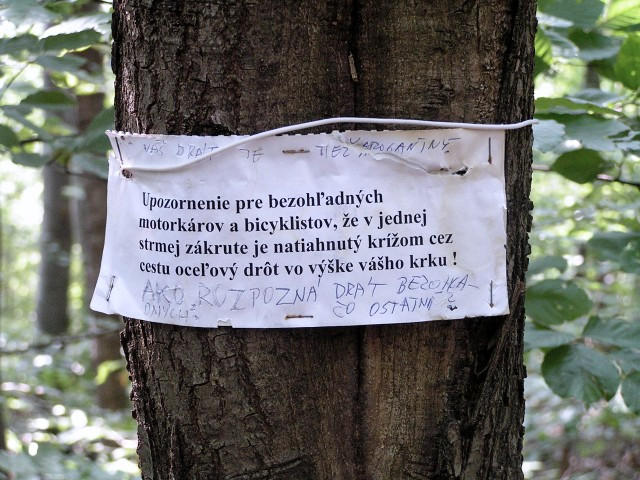 VÁŠ DRÁT JE TIEŽ
Upozornenie pre bezohľadných
motorkárov a bicyklistov, že v jednej
strmej zákrute je natiahnutý krížom cez
cestu oceľový drôt vo výške vášho krku !
AKO ROZPOZNÁ DRÁT BEZOHĽA-
ČO OSTATNÍ ?